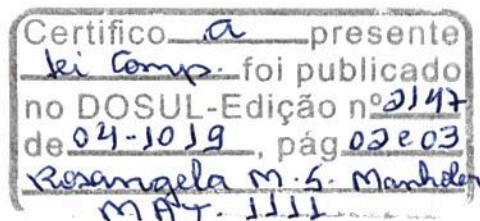 Certifico a presente
Lei Comp. foi publicado
no DOSUL-Edição nº 2147
de 04-10 19, pág 02 e 03
Rosangela M. S.
MAT. 1111